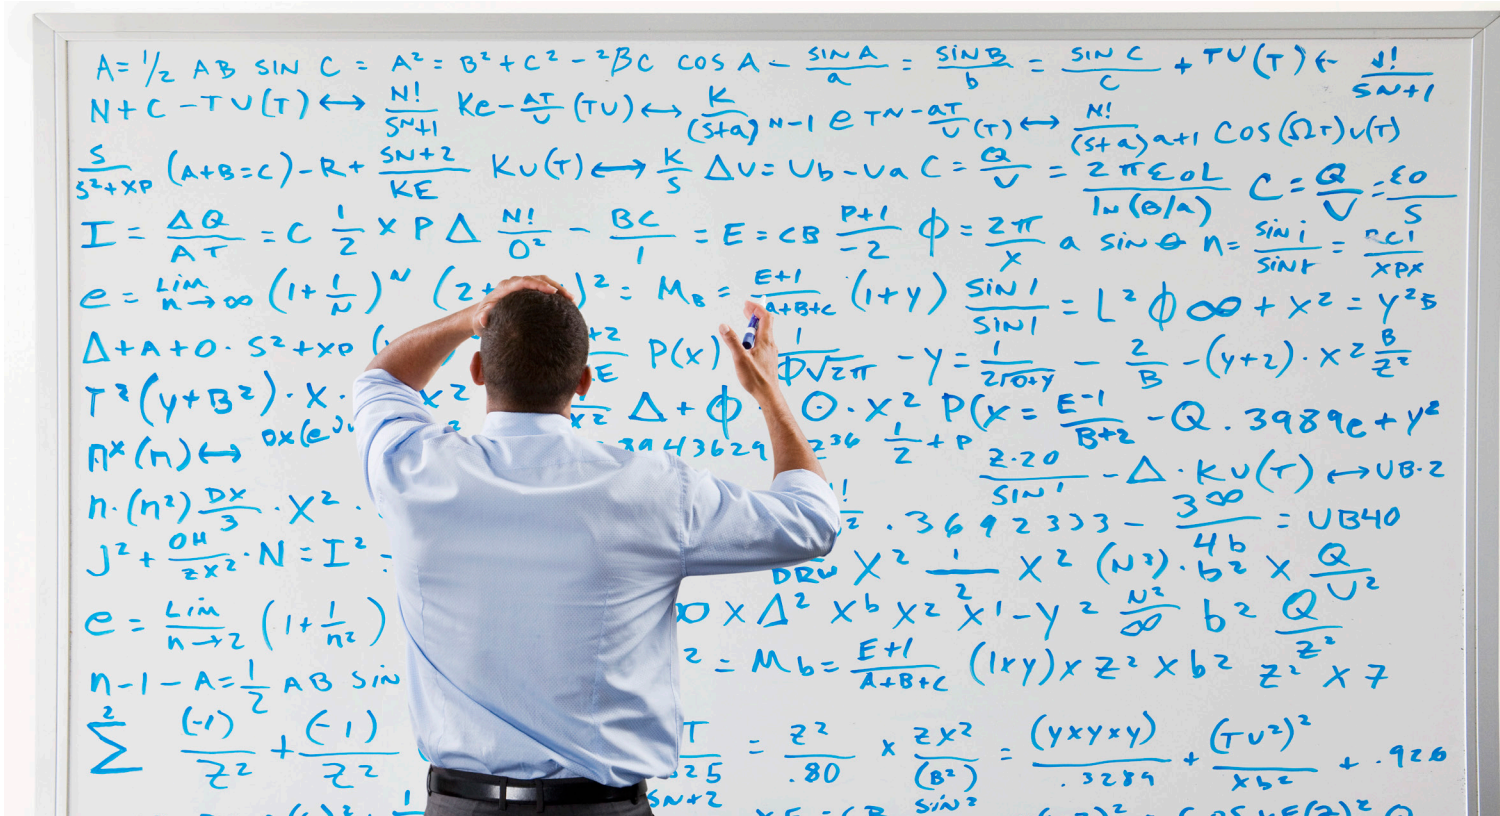 A = 1/2 AB SIN C = A² = B² + C² - ²BC COS A - SIN A/a = SIN B/b = SIN C/C + TU(T) ← N!/SN+1
N + C - TU(T) ↔ N!/SN+1 Ke - AT/U (TU) ↔ K/(S+a) N-1 e TN - aT/U (T) ↔ N!/(S+a)a+1 COS(ΩT)U(T)
S/S²+XP (A+B=C) - R + SN+2/KE KU(T) ↔ K/S ΔU = Ub - Ua C = Q/U = 2πεoL/IN(B/a) C = Q/V = εo/S
I = ΔQ/AT = C 1/2 × P Δ N!/O² - BC/1 = E = CB P+1/-2 ϕ = 2π/X a sin θ n = sin i/sin r = BC1/XPX
e = Lim n→∞ (1 + 1/N)ᴺ (2+ )² = M_B = E+1/A+B+C (1+y) SIN 1/SIN 1 = L² ϕ ∞ + X² = Y²B
Δ + A + O · S² + XP +2/E P(X) 1/ϕ√2π - Y = 1/2√O+Y - 2/B - (Y+2) · X² B/Z²
T² (Y+B²) · X · X² X² Δ + ϕ · O · X² P(X = E-1/B+2 - Q . 3989e + Y²
nˣ (n) ↔ ox(e 8943629 Z36 1/2 + P Z·20/SIN 1 - Δ · KU(T) ↔ UB·2
n · (n²) DX/3 · X² · .3692333 - 3∞/4b = UB40
J² + OH/ZX² · N = I² DRW X² 1/2 X² (N²) · b² × Q/U²
e = Lim n→2 (1 + 1/n²) ∞ × Δ² Xᵇ X² X¹ - Y² N²/∞ b² Q/Z²
n - 1 - A = 1/2 AB SIN ² = Mb = E+1/A+B+C (1×Y) × Z² × b² Z² × 7
Σ² (-1)/Z² + (-1)/Z² T/325 = Z²/.80 × ZX²/(B²) = (Y×Y×Y)/.3289 + (TU²)²/Xb² + .926
SN+2 SIN²